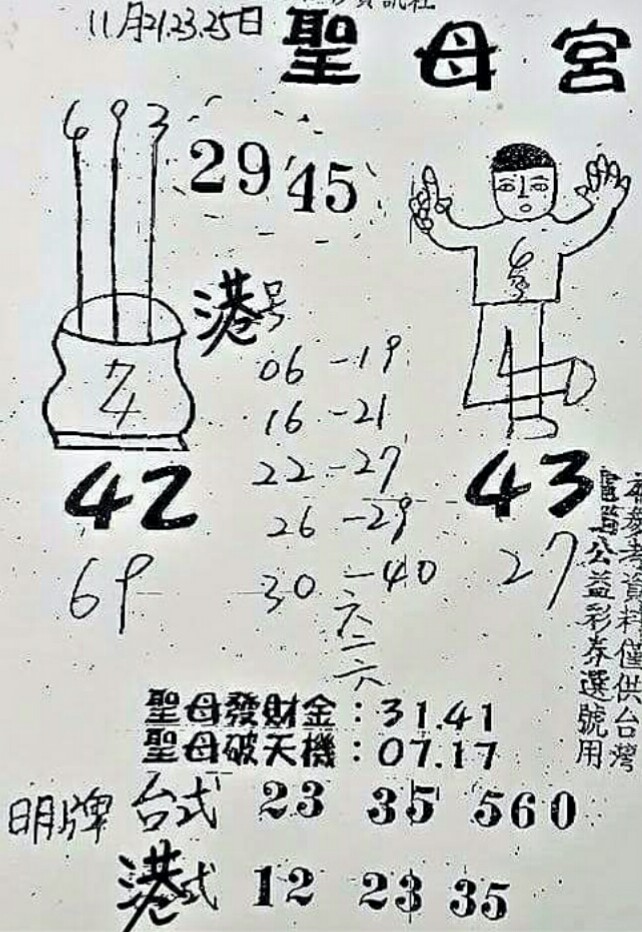 11月21.23.25日
聖母宮
6 9 3
29 45
港号
06 - 19
16 - 21
22 - 27
26 - 29
30 - 40
六二六
42
69
43
27
本參考資料僅供台灣
公益彩券選號用
聖母發財金：31.41
聖母破天機：07.17
明牌 台式 23 35 560
港式 12 23 35